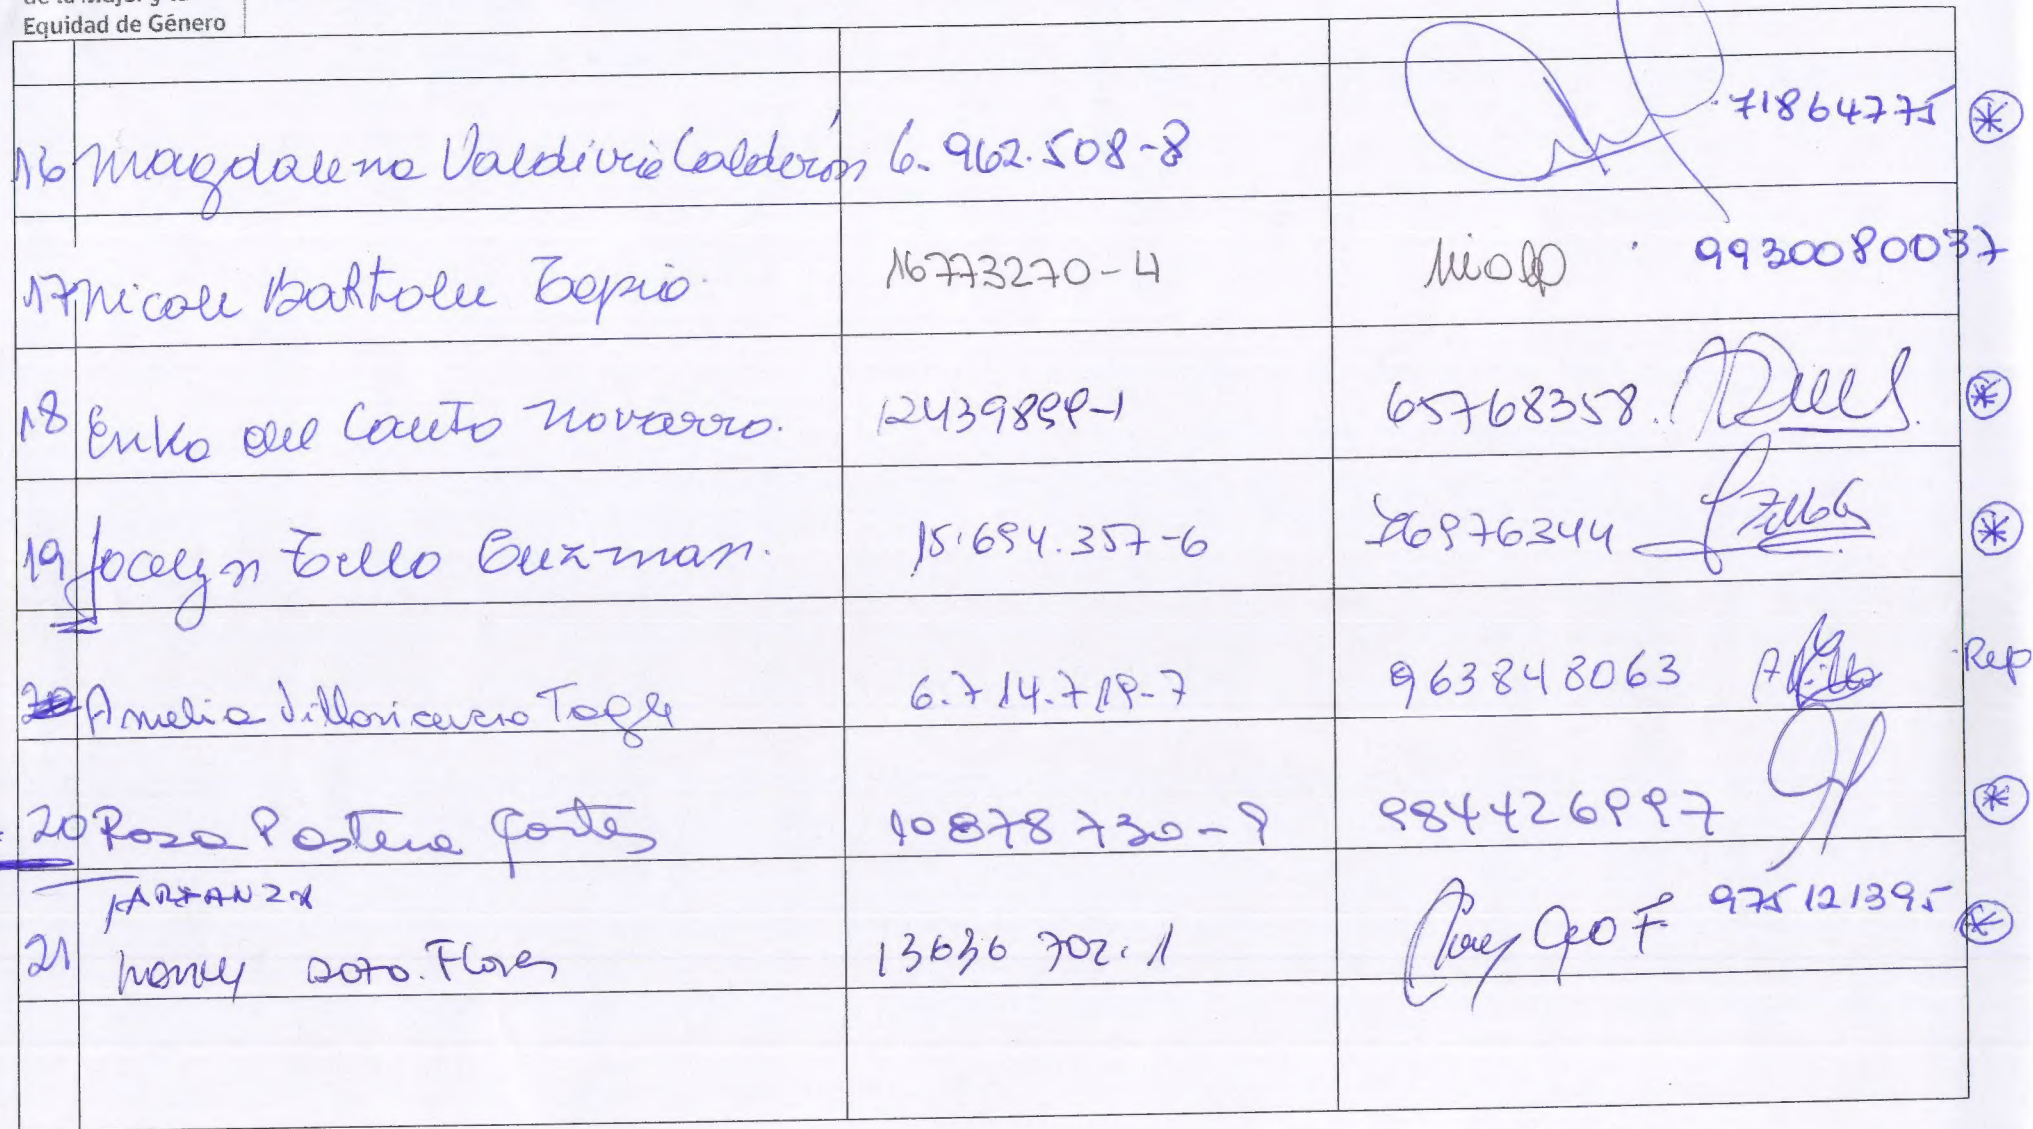 Equidad de Género
16 Magdalena Valdivia Calderón 6.962.508-8 71864775
17 Nicole Bartholu Tapia. 16773270-4 9930080037
18 Erika del Canto Navarro. 12439899-1 65768358.
19 Jocelyn Tello Guzman. 15.694.357-6 76976344
20 Amelia Villavicencio Tagle 6.714.719-7 963848063 Rep
20 Rosa Pastene Cortes 10878730-9 984426997
21 Nancy Soto. Flores 13636702.1 975121395